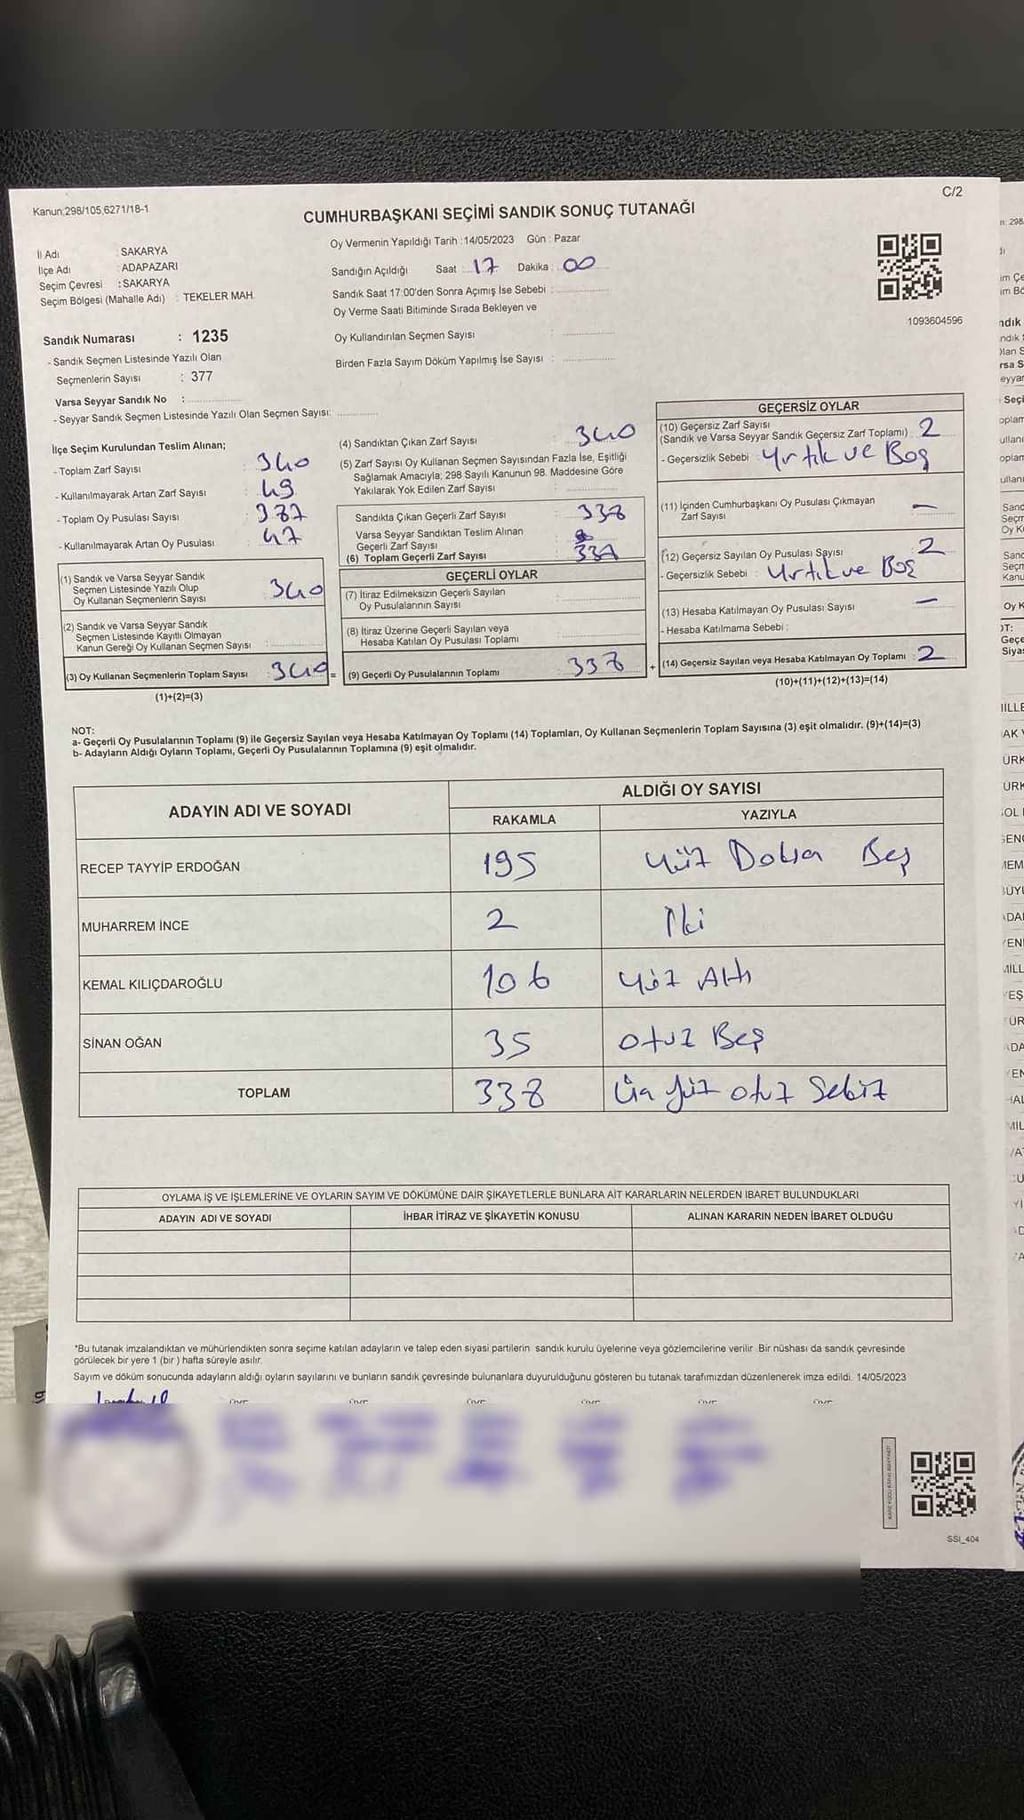 C/2
Kanun;298/105,6271/18-1
CUMHURBAŞKANI SEÇİMİ SANDIK SONUÇ TUTANAĞI
İl Adı : SAKARYA
İlçe Adı : ADAPAZARI
Seçim Çevresi : SAKARYA
Seçim Bölgesi (Mahalle Adı) : TEKELER MAH.
Oy Vermenin Yapıldığı Tarih :14/05/2023 Gün : Pazar
Sandığın Açıldığı Saat : 17 Dakika : 00
Sandık Saat 17:00'den Sonra Açımış İse Sebebi :
Oy Verme Saati Bitiminde Sırada Bekleyen ve
Oy Kullandırılan Seçmen Sayısı :
Birden Fazla Sayım Döküm Yapılmış İse Sayısı :
1093604596
Sandık Numarası : 1235
- Sandık Seçmen Listesinde Yazılı Olan
Seçmenlerin Sayısı : 377
Varsa Seyyar Sandık No :
- Seyyar Sandık Seçmen Listesinde Yazılı Olan Seçmen Sayısı:
İlçe Seçim Kurulundan Teslim Alınan;
- Toplam Zarf Sayısı : 340
- Kullanılmayarak Artan Zarf Sayısı : 49
- Toplam Oy Pusulası Sayısı : 387
- Kullanılmayarak Artan Oy Pusulası : 47
(1) Sandık ve Varsa Seyyar Sandık
Seçmen Listesinde Yazılı Olup
Oy Kullanan Seçmenlerin Sayısı : 340
(2) Sandık ve Varsa Seyyar Sandık
Seçmen Listesinde Kayıtlı Olmayan
Kanun Gereği Oy Kullanan Seçmen Sayısı :
(3) Oy Kullanan Seçmenlerin Toplam Sayısı : 340 =
(1)+(2)=(3)
(4) Sandıktan Çıkan Zarf Sayısı : 340
(5) Zarf Sayısı Oy Kullanan Seçmen Sayısından Fazla İse, Eşitliği
Sağlamak Amacıyla; 298 Sayılı Kanunun 98. Maddesine Göre
Yakılarak Yok Edilen Zarf Sayısı :
Sandıkta Çıkan Geçerli Zarf Sayısı : 338
Varsa Seyyar Sandıktan Teslim Alınan
Geçerli Zarf Sayısı
(6) Toplam Geçerli Zarf Sayısı
GEÇERLİ OYLAR
(7) İtiraz Edilmeksizin Geçerli Sayılan
Oy Pusulalarının Sayısı :
(8) İtiraz Üzerine Geçerli Sayılan veya
Hesaba Katılan Oy Pusulası Toplamı :
(9) Geçerli Oy Pusulalarının Toplamı : 338 +
GEÇERSİZ OYLAR
(10) Geçersiz Zarf Sayısı
(Sandık ve Varsa Seyyar Sandık Geçersiz Zarf Toplamı) : 2
- Geçersizlik Sebebi : Yırtık ve Boş
(11) İçinden Cumhurbaşkanı Oy Pusulası Çıkmayan
Zarf Sayısı : –
(12) Geçersiz Sayılan Oy Pusulası Sayısı : 2
- Geçersizlik Sebebi : Yırtık ve Boş
(13) Hesaba Katılmayan Oy Pusulası Sayısı : –
- Hesaba Katılmama Sebebi :
(14) Geçersiz Sayılan veya Hesaba Katılmayan Oy Toplamı : 2
(10)+(11)+(12)+(13)=(14)
NOT:
a- Geçerli Oy Pusulalarının Toplamı (9) ile Geçersiz Sayılan veya Hesaba Katılmayan Oy Toplamı (14) Toplamları, Oy Kullanan Seçmenlerin Toplam Sayısına (3) eşit olmalıdır. (9)+(14)=(3)
b- Adayların Aldığı Oyların Toplamı, Geçerli Oy Pusulalarının Toplamına (9) eşit olmalıdır.
ADAYIN ADI VE SOYADI
ALDIĞI OY SAYISI
RAKAMLA YAZIYLA
RECEP TAYYİP ERDOĞAN 195 Yüz Doksan Beş
MUHARREM İNCE 2 İki
KEMAL KILIÇDAROĞLU 106 Yüz Altı
SİNAN OĞAN 35 Otuz Beş
TOPLAM 338 Üç yüz otuz Sekiz
OYLAMA İŞ VE İŞLEMLERİNE VE OYLARIN SAYIM VE DÖKÜMÜNE DAİR ŞİKAYETLERLE BUNLARA AİT KARARLARIN NELERDEN İBARET BULUNDUKLARI
ADAYIN ADI VE SOYADI İHBAR İTİRAZ VE ŞİKAYETİN KONUSU ALINAN KARARIN NEDEN İBARET OLDUĞU
*Bu tutanak imzalandıktan ve mühürlendikten sonra seçime katılan adayların ve talep eden siyasi partilerin sandık kurulu üyelerine veya gözlemcilerine verilir. Bir nüshası da sandık çevresinde
görülecek bir yere 1 (bir ) hafta süreyle asılır.
Sayım ve döküm sonucunda adayların aldığı oyların sayılarını ve bunların sandık çevresinde bulunanlara duyurulduğunu gösteren bu tutanak tarafımızdan düzenlenerek imza edildi. 14/05/2023
SSI_404